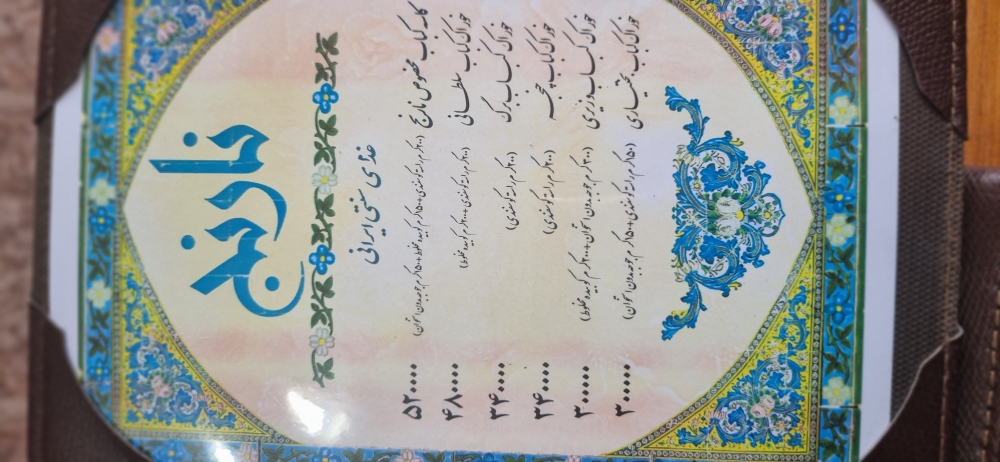 نارنج
غذای سنتی ایرانی
کله کباب مخصوص نارنج (۲۰۰گرم راسته گوسفندی+۱۵۰گرم کوبیده مخلوط+۱۵۰گرم جوجه بدون استخوان) ۵۲۰۰۰۰
خوراک کباب سلطانی (۲۰۰گرم راسته گوسفندی+۲۰۰گرم کوبیده مخلوط) ۴۸۰۰۰۰
خوراک کباب برگ (۲۰۰گرم راسته گوسفندی) ۳۴۰۰۰۰
خوراک کباب چنجه (۲۰۰گرم راسته گوسفندی) ۳۴۰۰۰۰
خوراک کباب وزیری (۲۰۰گرم جوجه بدون استخوان+۲۰۰گرم کوبیده مخلوط) ۳۰۰۰۰۰
خوراک کباب بختیاری (۱۵۰گرم راسته گوسفندی+۱۵۰گرم جوجه بدون استخوان) ۳۰۰۰۰۰